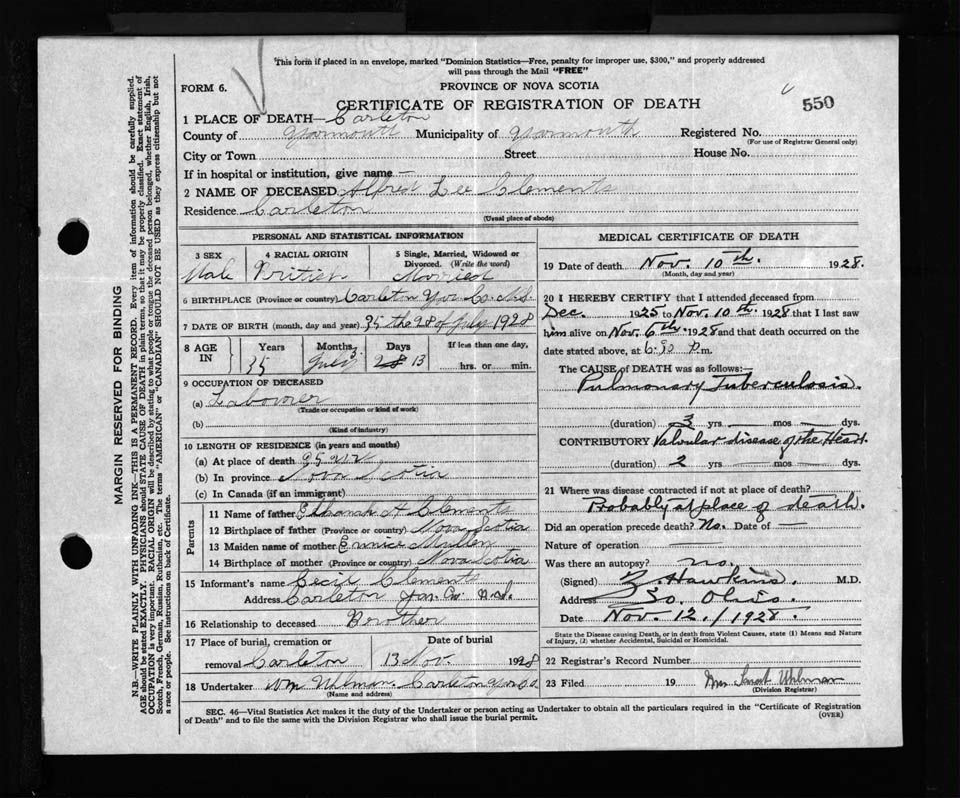 This form if placed in an envelope, marked "Dominion Statistics—Free, penalty for improper use, $300," and properly addressed
will pass through the Mail "FREE"
FORM 6.
PROVINCE OF NOVA SCOTIA
550
CERTIFICATE OF REGISTRATION OF DEATH
1 PLACE OF DEATH— Carleton
County of Yarmouth Municipality of Yarmouth Registered No.
(For use of Registrar General only)
City or Town Street House No.
If in hospital or institution, give name —
2 NAME OF DECEASED Alfred Lee Clements
Residence Carleton
(Usual place of abode)
PERSONAL AND STATISTICAL INFORMATION
3 SEX 4 RACIAL ORIGIN 5 Single, Married, Widowed or
Divorced. (Write the word)
Male British Married
6 BIRTHPLACE (Province or country) Carleton Yar Co. N.S.
7 DATE OF BIRTH (month, day and year) 35 the 28 of July 1928
8 AGE IN Years Months Days If less than one day,
35 July 3 28 13 hrs. or min.
9 OCCUPATION OF DECEASED
(a) Labourer
(Trade or occupation or kind of work)
(b)
(Kind of industry)
10 LENGTH OF RESIDENCE (in years and months)
(a) At place of death
(b) In province Nova Scotia
(c) In Canada (if an immigrant)
Parents
11 Name of father H Clements
12 Birthplace of father (Province or country) Nova Scotia
13 Maiden name of mother Eunice Mullen
14 Birthplace of mother (Province or country) Nova Scotia
15 Informant's name Cecil Clements
Address Carleton
16 Relationship to deceased Brother
17 Place of burial, cremation or Date of burial
removal Carleton 13 Nov. 1928
18 Undertaker Wm Uhlman Carleton Yar Co
(Name and address)
MEDICAL CERTIFICATE OF DEATH
19 Date of death Nov. 10th. 1928.
(Month, day and year)
20 I HEREBY CERTIFY that I attended deceased from
Dec. 1925 to Nov. 10th 1928 that I last saw
him alive on Nov. 6th 1928 and that death occurred on
date stated above, at 6:30 p.m.
The CAUSE of DEATH was as follows:—
Pulmonary Tuberculosis.
(duration) 3 yrs — mos — dys.
CONTRIBUTORY Valvular disease of the Heart.
(duration) 2 yrs — mos — dys.
21 Where was disease contracted if not at place of death?
Probably at place of death.
Did an operation precede death? No. Date of —
Nature of operation —
Was there an autopsy? no.
(Signed) Z. Hawkins. M.D.
Address So. Ohio.
Date Nov. 12/1928.
State the Disease causing Death, or in death from Violent Causes, state (1) Means and Nature
of Injury, (2) whether Accidental, Suicidal or Homicidal.
22 Registrar's Record Number
23 Filed 19 Mrs Uhlman
(Division Registrar)
SEC. 46—Vital Statistics Act makes it the duty of the Undertaker or person acting as Undertaker to obtain all the particulars required in the "Certificate of Registration
of Death" and to file the same with the Division Registrar who shall issue the burial permit.
(OVER)
MARGIN RESERVED FOR BINDING
N.B.—WRITE PLAINLY WITH UNFADING INK—THIS IS A PERMANENT RECORD. Every item of information should be carefully supplied.
AGE should be stated EXACTLY. PHYSICIANS should STATE CAUSE OF DEATH in plain terms, so that it may be properly classified. Exact statement of
OCCUPATION is very important. RACIAL ORIGIN will be described by stating to what people or tongue the deceased person belonged, whether English, Irish,
Scotch, French, German, Russian, Ruthenian, etc. The terms "AMERICAN" or "CANADIAN" SHOULD NOT BE USED as they express citizenship but not
a race or people. See instructions on back of Certificate.